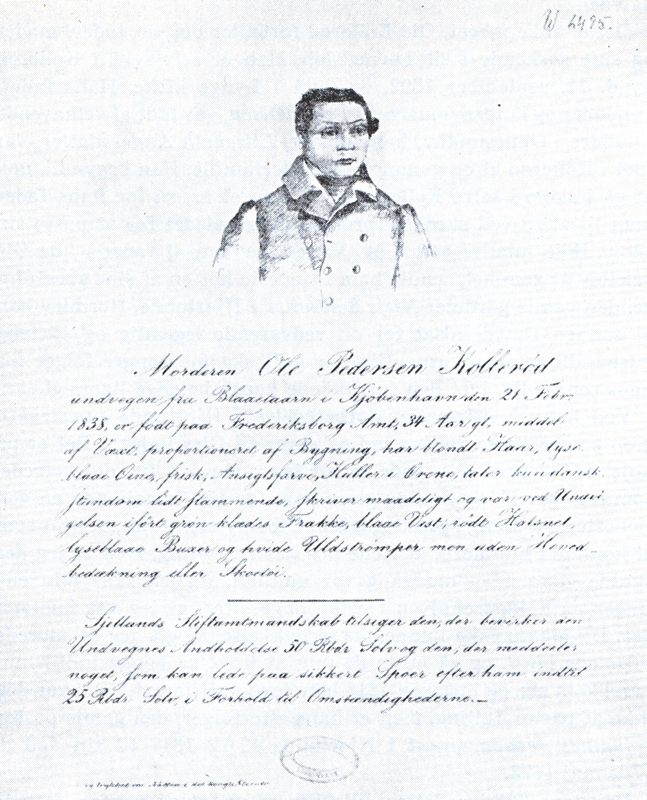 W 4495.
Morderen Ole Pedersen Kollerød
undvegen fra Blaataarn i Kjöbenhavn den 21 Febr.
1838, er födt paa Frederiksborg Amt, 34 Aar gl, middel
af Væxt, proportioneret af Bygning, har blondt Haar, lyse
blaae Øine, frisk Ansigtsfarve, Huller i Ørene, taler kun dansk
stundom lidt stammende, skriver maadeligt og var ved Undvi
gelsen ifört grön klædes Frakke, blaae Vest, rödt Halsnet,
lyseblaae Buxer og hvide Uldströmper men uden Hoved-
bedækning eller Skoetöi.
Sjellands Stiftamtmandskab tilsiger den, der bevirker den
Undvegnes Andholdelse 50 Rbdr Sölv og den, der meddeler
noget, som kan lede paa sikkert Spoer efter ham indtil
25 Rbdr Sölv, i Forhold til Omstændighederne.—